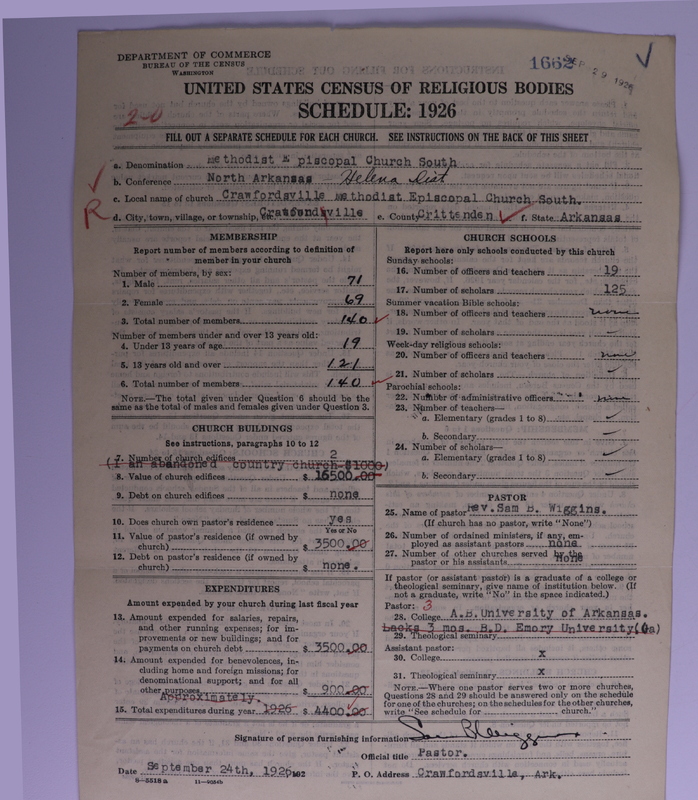 DEPARTMENT OF COMMERCE
BUREAU OF THE CENSUS
WASHINGTON
1662
SEP 29 1926
UNITED STATES CENSUS OF RELIGIOUS BODIES
SCHEDULE: 1926
2-0
FILL OUT A SEPARATE SCHEDULE FOR EACH CHURCH. SEE INSTRUCTIONS ON THE BACK OF THIS SHEET
a. Denomination Methodist E piscopal Church South
b. Conference North Arkansas - Helena Dist
c. Local name of church Crawfordsville Methodist Episcopal Church South.
R
d. City, town, village, or township, etc. Crawfordsville e. County Crittenden f. State Arkansas
MEMBERSHIP
Report number of members according to definition of
member in your church
Number of members, by sex:
1. Male 71
2. Female 69
3. Total number of members 140
Number of members under and over 13 years old:
4. Under 13 years of age 19
5. 13 years old and over 121
6. Total number of members 140
NOTE.—The total given under Question 6 should be
same as the total of males and females given under Question 3.
CHURCH BUILDINGS
See instructions, paragraphs 10 to 12
7. Number of church edifices 2
(1 an abandoned country church-$1000)
8. Value of church edifices $ 16500.00
9. Debt on church edifices $ none
10. Does church own pastor's residence yes
Yes or No
11. Value of pastor's residence (if owned by
church) $ 3500.00
12. Debt on pastor's residence (if owned by
church) $ none.
EXPENDITURES
Amount expended by your church during last fiscal year
13. Amount expended for salaries, repairs,
and other running expenses; for im-
provements or new buildings; and for
payments on church debt $ 3500.00
14. Amount expended for benevolences, in-
cluding home and foreign missions; for
denominational support; and for all
other purposes $ 900.00
Approximately.
15. Total expenditures during year 1926 $ 4400.00
CHURCH SCHOOLS
Report here only schools conducted by this church
Sunday schools:
16. Number of officers and teachers 19
17. Number of scholars 125
Summer vacation Bible schools:
18. Number of officers and teachers none
19. Number of scholars
Week-day religious schools:
20. Number of officers and teachers none
21. Number of scholars
Parochial schools:
22. Number of administrative officers none
23. Number of teachers—
a. Elementary (grades 1 to 8)
b. Secondary
24. Number of scholars—
a. Elementary (grades 1 to 8)
b. Secondary
PASTOR
25. Name of pastor Rev. Sam B. Wiggins.
(If church has no pastor, write "None")
26. Number of ordained ministers, if any, em-
ployed as assistant pastors none
27. Number of other churches served by the
pastor or his assistants None
If pastor (or assistant pastor) is a graduate of a college or
theological seminary, give name of institution below. (If
not a graduate, write "No" in the space indicated.)
Pastor: 3
28. College A.B. University of Arkansas.
Lacks 3 mos. B.D. Emory University(Ga)
29. Theological seminary
Assistant pastor:
30. College x
31. Theological seminary x
NOTE.—Where one pastor serves two or more churches,
Questions 28 and 29 should be answered only on the schedule
for one of the churches; on the schedules for the other churches,
write "See schedule for church."
Signature of person furnishing information Sam B Wiggins
Official title Pastor.
Date September 24th, 1926, 192 P. O. Address Crawfordsville, Ark.
8—5518 a 11—9054b